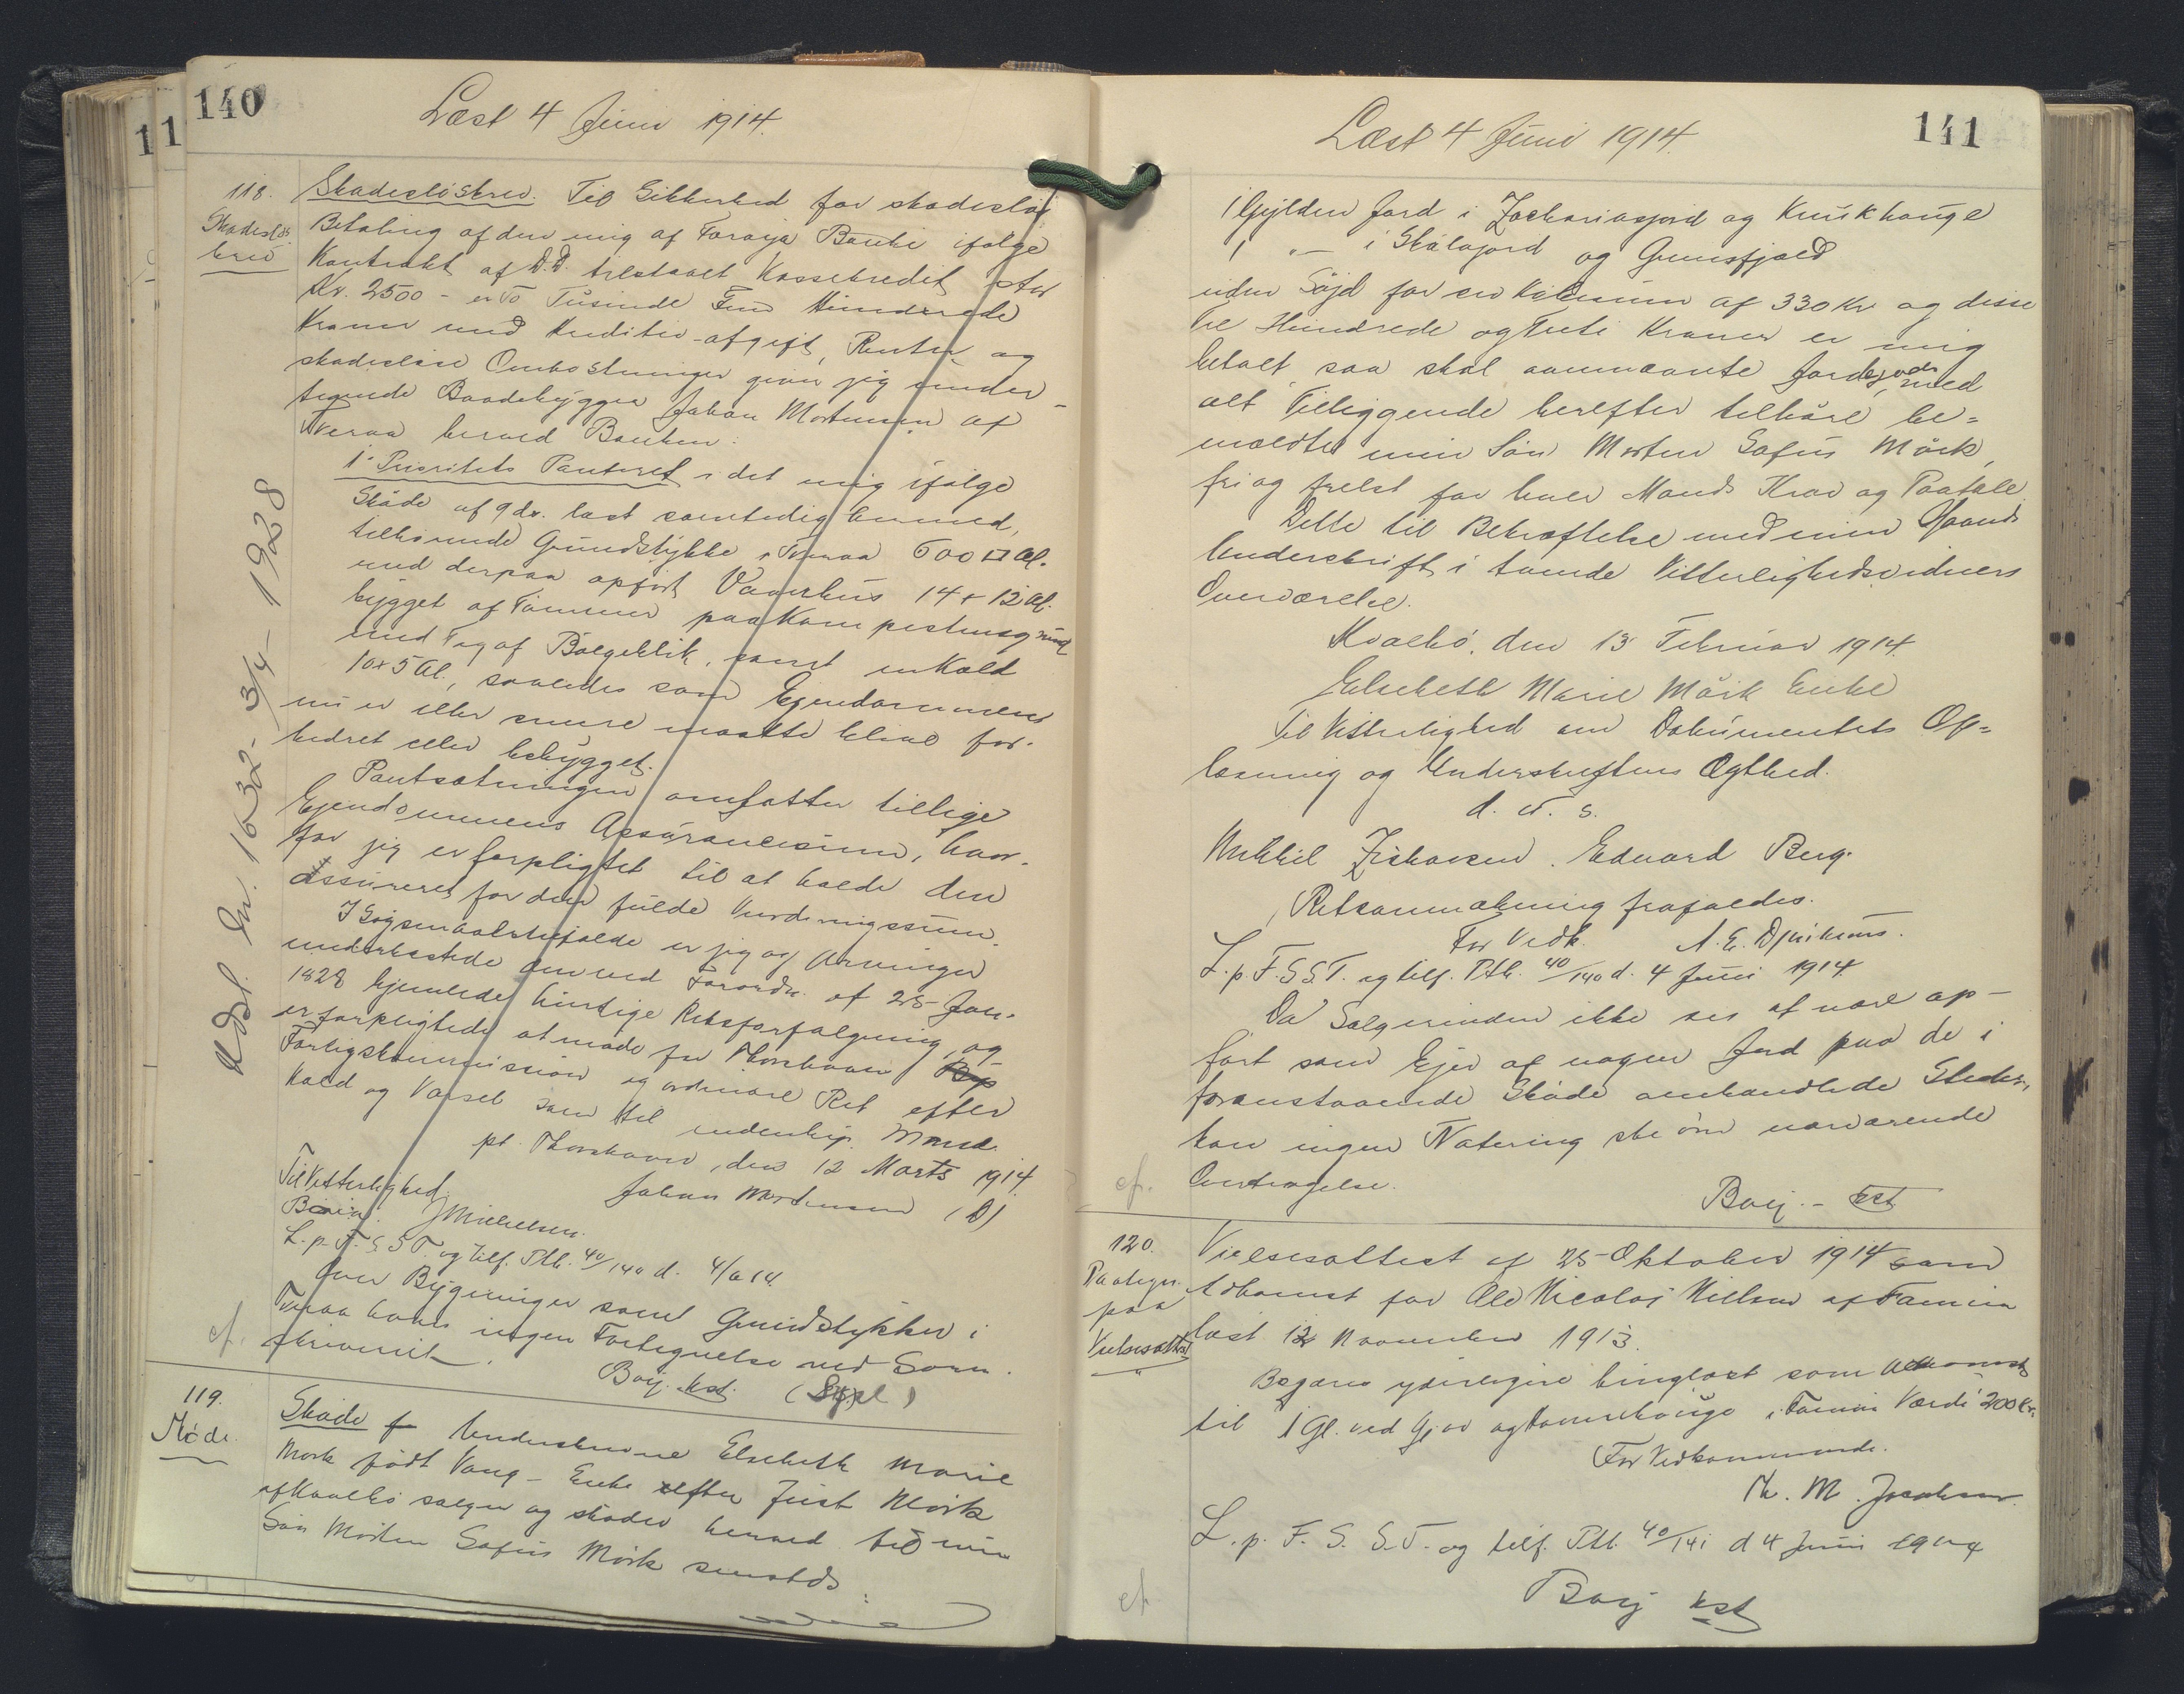 140
Læst 4 Juni 1914.
118.
Skadesløs
brev
Skadesløsbrev. Til Sikkerhed for skadesløs
Betaling af den mig af Føroya Banki ifølge
Kontrakt af D.D. tilstaaet Kassekredit stor
Kr. 2500 - er To Tusinde Fem Hundrede
Kroner med Kreditiv-afgift, Renter og
skadesløse Omkostninger giver jeg under-
tegnede Baadebygger Johan Mortensen af
Tveraa herved Banken:
1' Prioritets Panteret i det mig ifølge
Skøde af 9 ds. læst samtidig hermed,
tilhørende Grundstykke i Tveraa 600 □ Al.
med derpaa opført Vaanhus 14 + 12 Al.
bygget af Tømmer paa Kampestensgrund
med Tag af Bølgeblik, samt en Kold
10 x 5 Al., saaledes som Ejendommen
nu er eller senere maatte blive for-
bedret eller bebygget.
Pantsætningen omfatter tillige
Ejendommens Assurancesum, hvor-
for jeg er forpligtet til at holde den
assureret for den fulde Vurderingssum.
I Søgsmaalstilfælde er jeg og Arvinger
underkastede den ved Forordn. af 25 Jan.
1828 hjemlede hurtige Retsforfølgning, og
er forpligtede at møde for Thorshavn
Forligskommission og ordinære Ret efter
Kald og Varsel som til indenbys Mænd.
pt. Thorshavn, den 12 Marts 1914
Johan Mortensen (D)
Til Vitterlighed.
J Michelsen.
L. p. F. S S T. og tilf. Ptb. 40/140 d. 4/6 14.
Over Bygninger samt Grundstykker i
Tveraa haves ingen Fortegnelse ved Soren-
skriveriet.
Bærj. kst.
cf.
Udsl. Ln. 1632- 3/4- 1928
119.
Skøde.
Skøde Underskrevne Elsebeth Marie
Mørk født Vang - Enke efter Just Mørk
af Kvalbø sælger og skøder herved til min
Søn Morten Sofus Mørk smstds:
141
Læst 4 Juni 1914.
1 Gylden Jord i Zachariasjord og Knukhauge
1 " - i Skalajord og Gunsfjæld
uden Søjd for en Købesum af 330 Kr og disse
Tre Hundrede og Treti Kroner er mig
betalt, saa skal ovennævnte Jordegods med
alt Tilliggende herefter tilhøre be-
meldte min Søn Morten Sofus Mørk,
fri og frelst for hver Mands Krav og Paatale.
Dette til Bekræftelse med min Haands
Underskrift i tvende Vitterlighedsvidners
Overværelse.
Kvalbø, den 13 Februar 1914.
Elsebeth Marie Mørk Enke
Til Vitterlighed om Dokumentets Op-
læsning og Underskriftens Ægthed.
d. u. s.
Mikkel Ziskasen. Eduard Berg.
Retsanmærkning frafaldes.
For Vedk.
L. p. F. S S. T. og tilf. Ptb. 40/140 d. 4 Juni 1914
Da Sælgerinden ikke ses at være op-
ført som Ejer af nogen Jord paa de i
foranstaaende Skøde omhandlede Steder,
kan ingen Notering ske om nærværende
Overdragelse.
Bærj. - kst.
cf.
120.
Paategn.
paa
Vielsesattest
Vielsesattest af 25 Oktober 1914 som
Adkomst for Ole Nicolaj Nielsen af Famien
læst 12 November 1913.
Begæres yderligere tinglæst som Adkomst
til 1 Gl. ved Gjov og Hamrehauge i Famien Værdi 200 Kr.
For Vedkommende.
M. Jacobsen.
L. p. F. S. S. T. og tilf. Ptb. 40/141 d 4 Juni 1914
Bærj kst
cf.